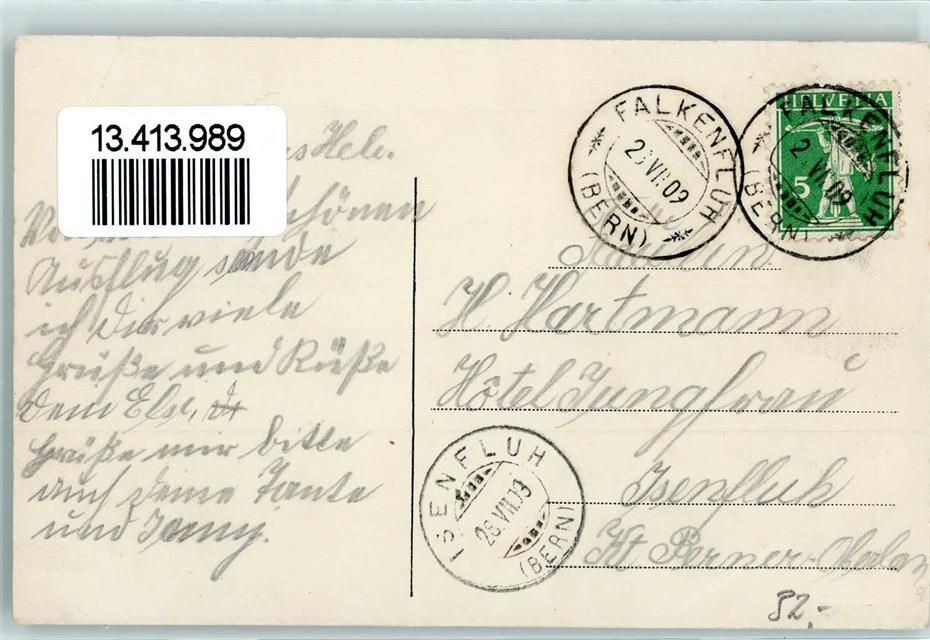 13.413.989
Hele.
schönen
Ausflug sende
ich Dir viele
Grüße und Küße
Dein Else.
Grüße mir bitte
auch Deine Tante
und
FALKENFLUH
VII 09
(BERN)
FALKENFLUH
VII 09
(BERN)
HELVETIA
5
H. Hartmann
Hôtel Jungfrau
Isenfluh
Kt Berner-Oberlan
ISENFLUH
28 VII 09
(BERN)
52,-